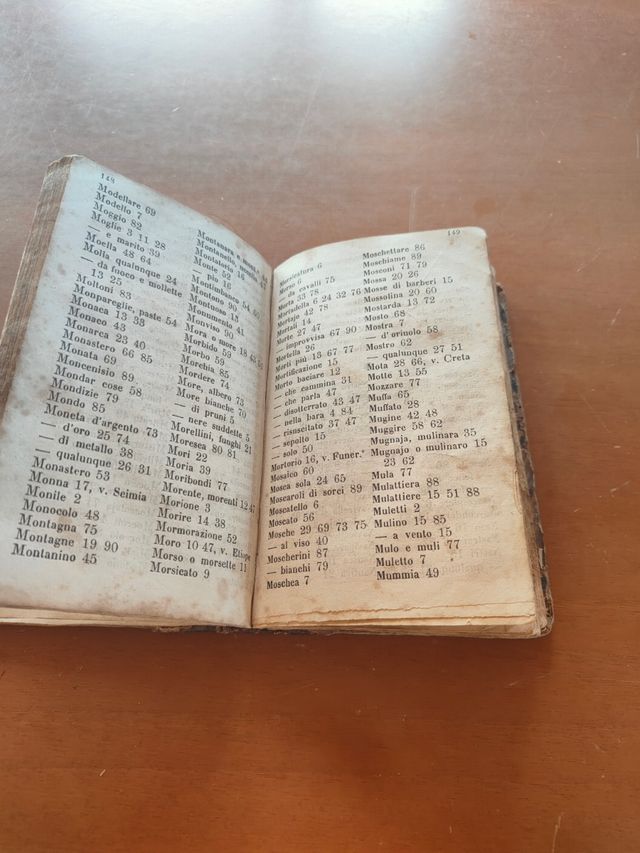 148
Modellare 69
Modello 7
Moggio 82
Moglie 3 11 28
— e marito 39
Moella 48 64
Molla qualunque 24
— da fuoco e mollette
13 25
Moltoni 83
Monpareglie, paste 54
Monaca 13 33
Monaco 43
Monarca 23 40
Monastero 66 85
Monata 69
Moncenisio 89
Mondar cose 58
Mondizie 79
Mondo 85
Moneta d'argento 73
— d'oro 25 74
— di metallo 38
— qualunque 26 31
Monastero 53
Monna 17, v. Seimia
Monile 2
Monocolo 48
Montagna 75
Montagne 19 90
Montanino 45
Montanara
Montanello,
Montato 16
Monte 62
— più 16
Montone 90
Monumento 15
Monuncolo 41
Monviso 90
Mora o more 18
Morbido 59
Morbo 59
Morchia 85
Mordere 74
More, albero 73
More bianche 70
— di pruni 5
— nere suddette 5
Morellini, fuoghi 21
Moresca 80 81
Mori 22
Moria 39
Moribondi 77
Morente, morenti 12 47
Morione 3
Morire 14 38
Mormorazione 52
Moro 10 47, v. Etiope
Morso o morsette 11
Morsicato 9
149
Morsicatura 6
Morso 6
— da cavalli 75
Morta 53 78
Mortadella 6 24 32 76
Mortaio 42 78
Mortali 14
Morte 27 47
— improvvisa 67 90
Mortella 26
Morti più 13 67 77
Mortificazione 15
Morto baciare 12
— che cammina 31
— che parla 47
— disotterrato 43 47
— nella bara 4 84
— risuscitato 37 47
— sepolto 15
— solo 50
Mortorio 16, v. Funer.
Mosaico 60
Mosca sola 24 65
Moscaroli di sorci 89
Moscatello 6
Moscato 56
Mosche 29 69 73 75
— al viso 40
Moscherini 87
— bianchi 79
Moschea 7
Moschettare 86
Moschiame 89
Mosconi 71 79
Mossa 20 26
Mosse di barberi 15
Mossolina 20 60
Mostarda 13 72
Mosto 68
Mostra 7
— d'oriuolo 58
Mostro 62
— qualunque 27 51
Mota 28 66, v. Creta
Motte 13 55
Mozzare 77
Muffa 65
Muffato 28
Mugine 42 48
Muggire 58 62
Mugnaja, mulinara 35
Mugnajo o mulinaro 15
23 62
Mula 77
Mulattiera 88
Mulattiere 15 51 88
Muletti 2
Mulino 15 85
— a vento 15
Mulo e muli 77
Muletto 7
Mummia 49